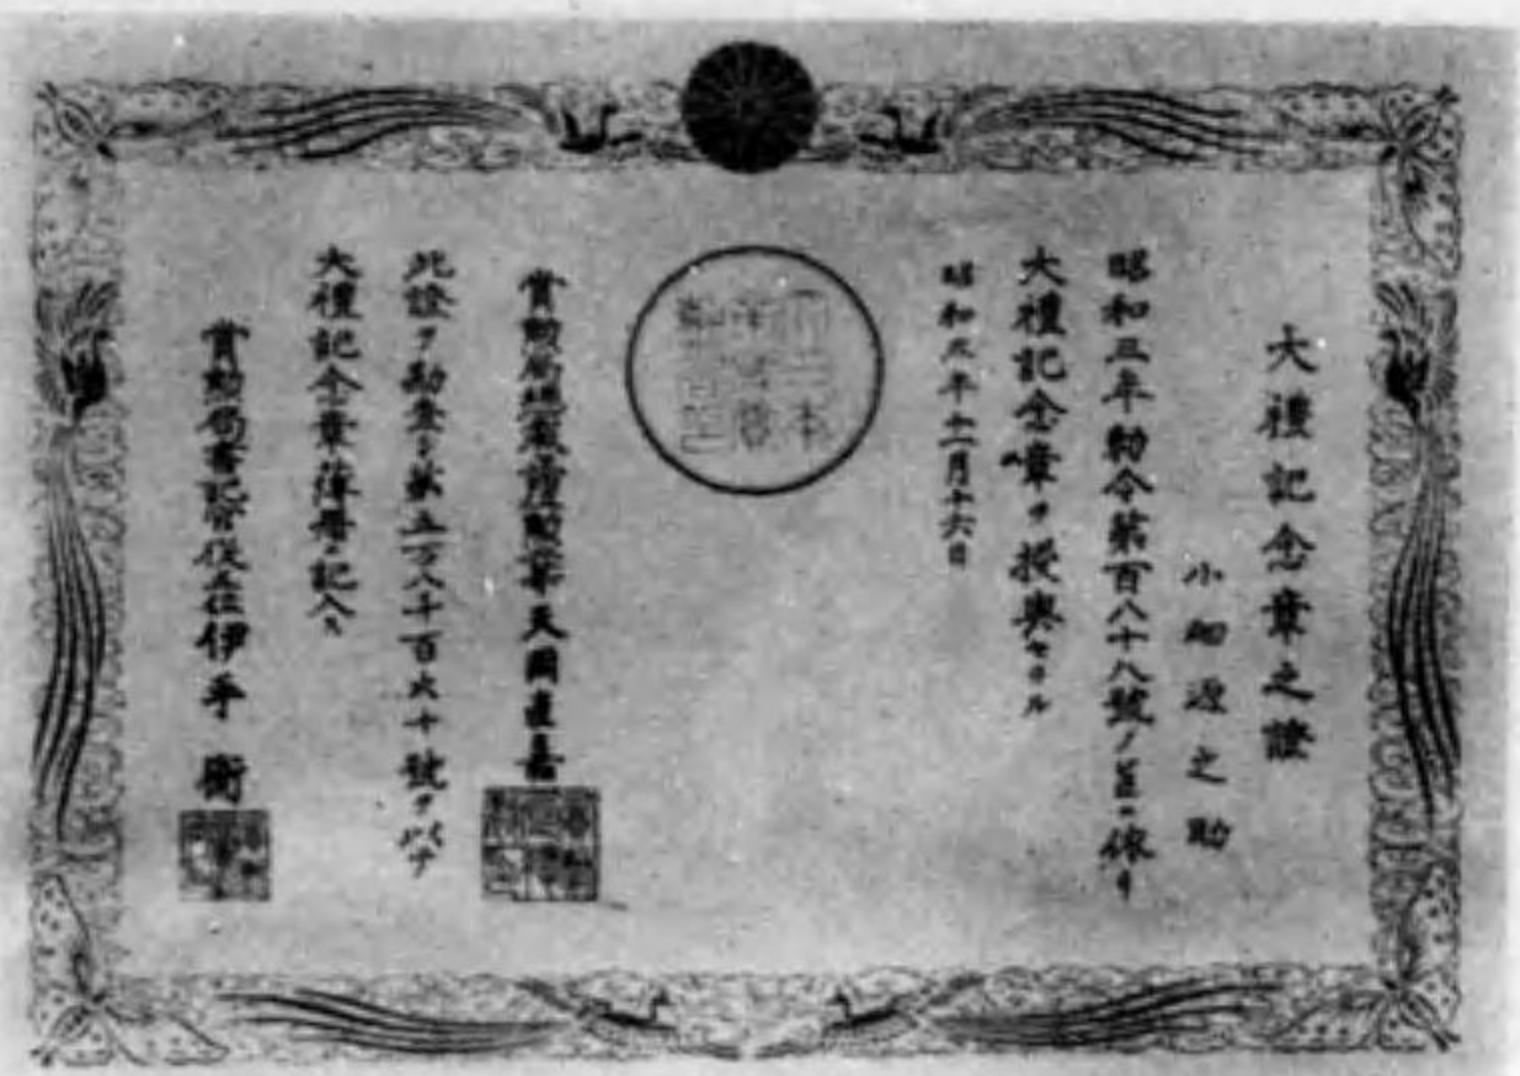 大禮記念章之證
小畑源之助
昭和三年勅令第百八十八號ノ旨ニ依リ
大禮記念章ヲ授與セラル
昭和三年十一月十六日
賞勲局總裁從三位勲一等天岡直嘉
此證ヲ勘査シ第五万八千百六十號ヲ以テ
大禮記念章簿册ニ記入ス
賞勲局書記官正五位伊手 衛